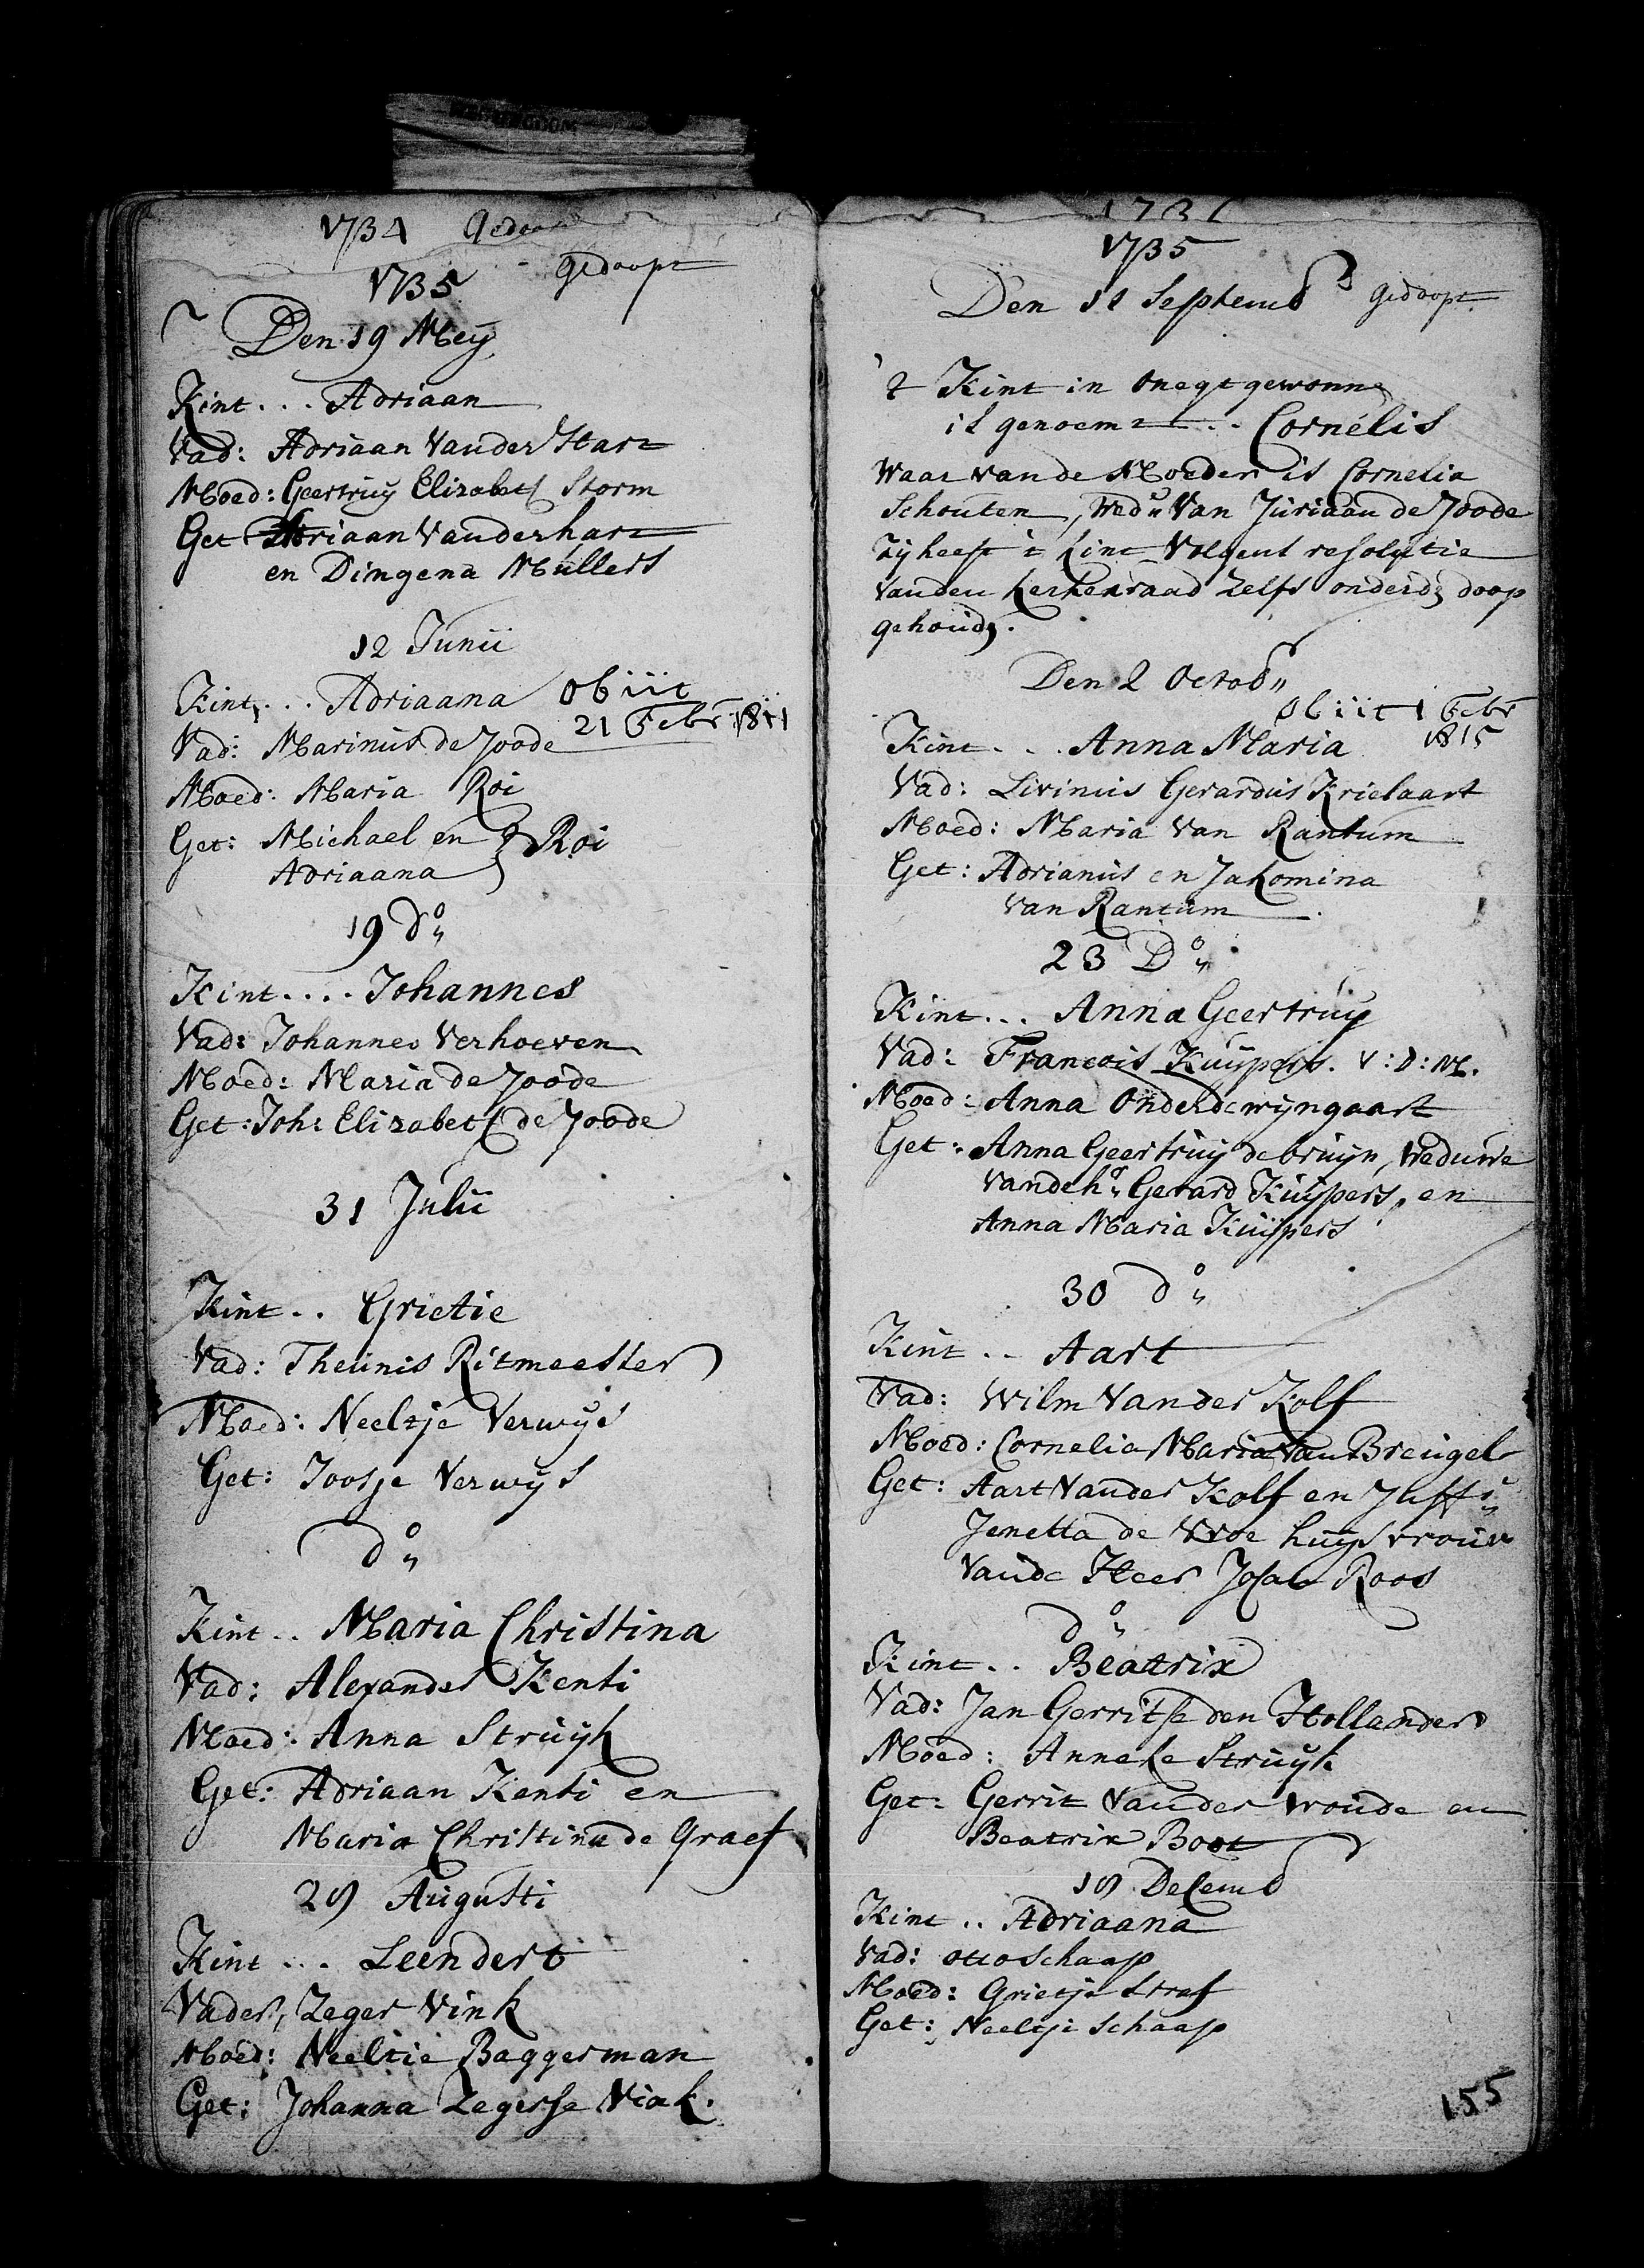 1734 Gedoopt
1735 Gedoopt
Den 19 Meij
Kint... Adriaan
Vad: Adriaan Vander Hart
Moed: Geertruij Elizabeth Storm
Get Adriaan Vander hart
en Dingena Mullers
12 Junii
Kint... Adriaana obiit
21 Febr 1811
Vad: Marinus de Joode
Moed: Maria Roi
Get: Michael en } Roi
Adriaana
19 do
Kint.... Johannes
Vad: Johannes Verhoeven
Moed: Maria de Joode
Get: Joh: Elizabeth de Joode
31 Julii
Kint.. Grietie
Vad: Theunis Ritmeester
Moed: Neeltje Verwijs
Get: Joosje Verwijs
do
Kint.. Maria Christina
Vad: Alexander Kenti
Moed: Anna Struijk
Get: Adriaan Kenti en
Maria Christina de Graef
29 Augusti
Kint... Leendert
Vader, Zeger Vink
Moed: Neeltie Baggerman
Get: Johanna Zegerse Vink.
1735
Den 11 Septemb Gedoopt
't Kint in Onegt gewonne
is genoemt... Cornelis
Waar van de Moeder is Cornelia
Schouten, Wedu Van Juriaan de Joode
Zij heeft 't kint Volgens resolutie
Vanden kerkenraad zelfs onder d doop
gehoud.
Den 2 Octob
obiit 1 Febr
1815
Kint... Anna Maria
Vad: Livinus Gerardus Krielaart
Moed: Maria Van Rantum
Get: Adrianus en Jakomina
Van Rantum
23 Do
Kint... Anna Geertruij
Vad: Francois Kuijpers. V:D:M.
Moed: Anna Onderdewijngaart
Get: Anna Geertruij de bruijn, Weduwe
Van de hr Gerard Kuijpers, en
Anna Maria Kuijpers
30 do
Kint.. Aart
Vad: Wilm Vander Kolf
Moed: Cornelia Maria Van Breugel
Get: Aart Vander Kolf en Juffr
Jenetta de Vroe huijsvrouw
Vande Heer Josua Roos
do
Kint.. Beatrix
Vad: Jan Gerritse den Hollander
Moed: Anneke Struijk
Get: Gerrit Vander Woude en
Beatrix Boot
Decemb
Kint.. Adriaana
Vad: Otto Schaap
Moed: Grietje Straf
Get: Neeltje Schaap
155